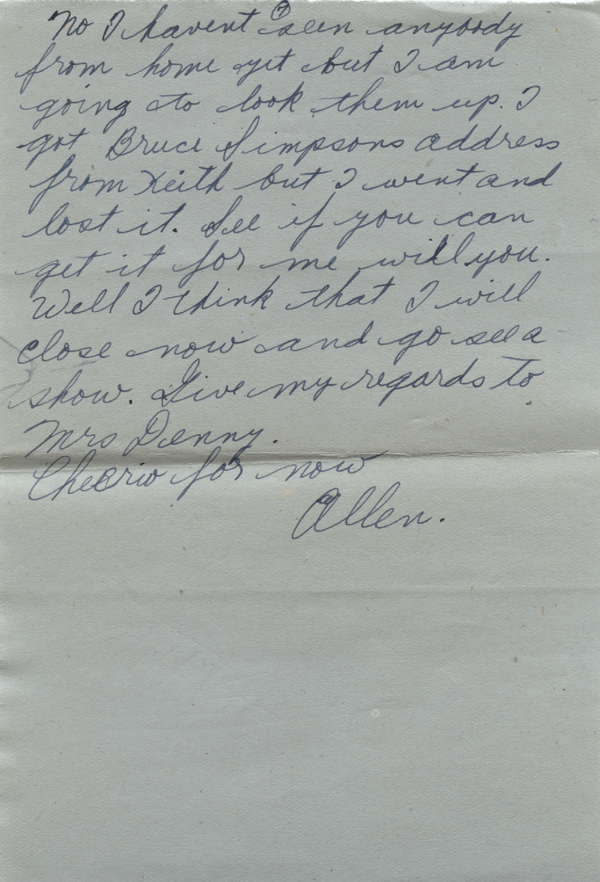 No I havent seen anybody
from home yet but I am
going to look them up. I
got Bruce Simpsons address
from Keith but I went and
lost it. See if you can
get it for me will you.
Well I think that I will
close now and go see a
show. Give my regards to
Mrs Denny.
Cheerio for now
Allen.